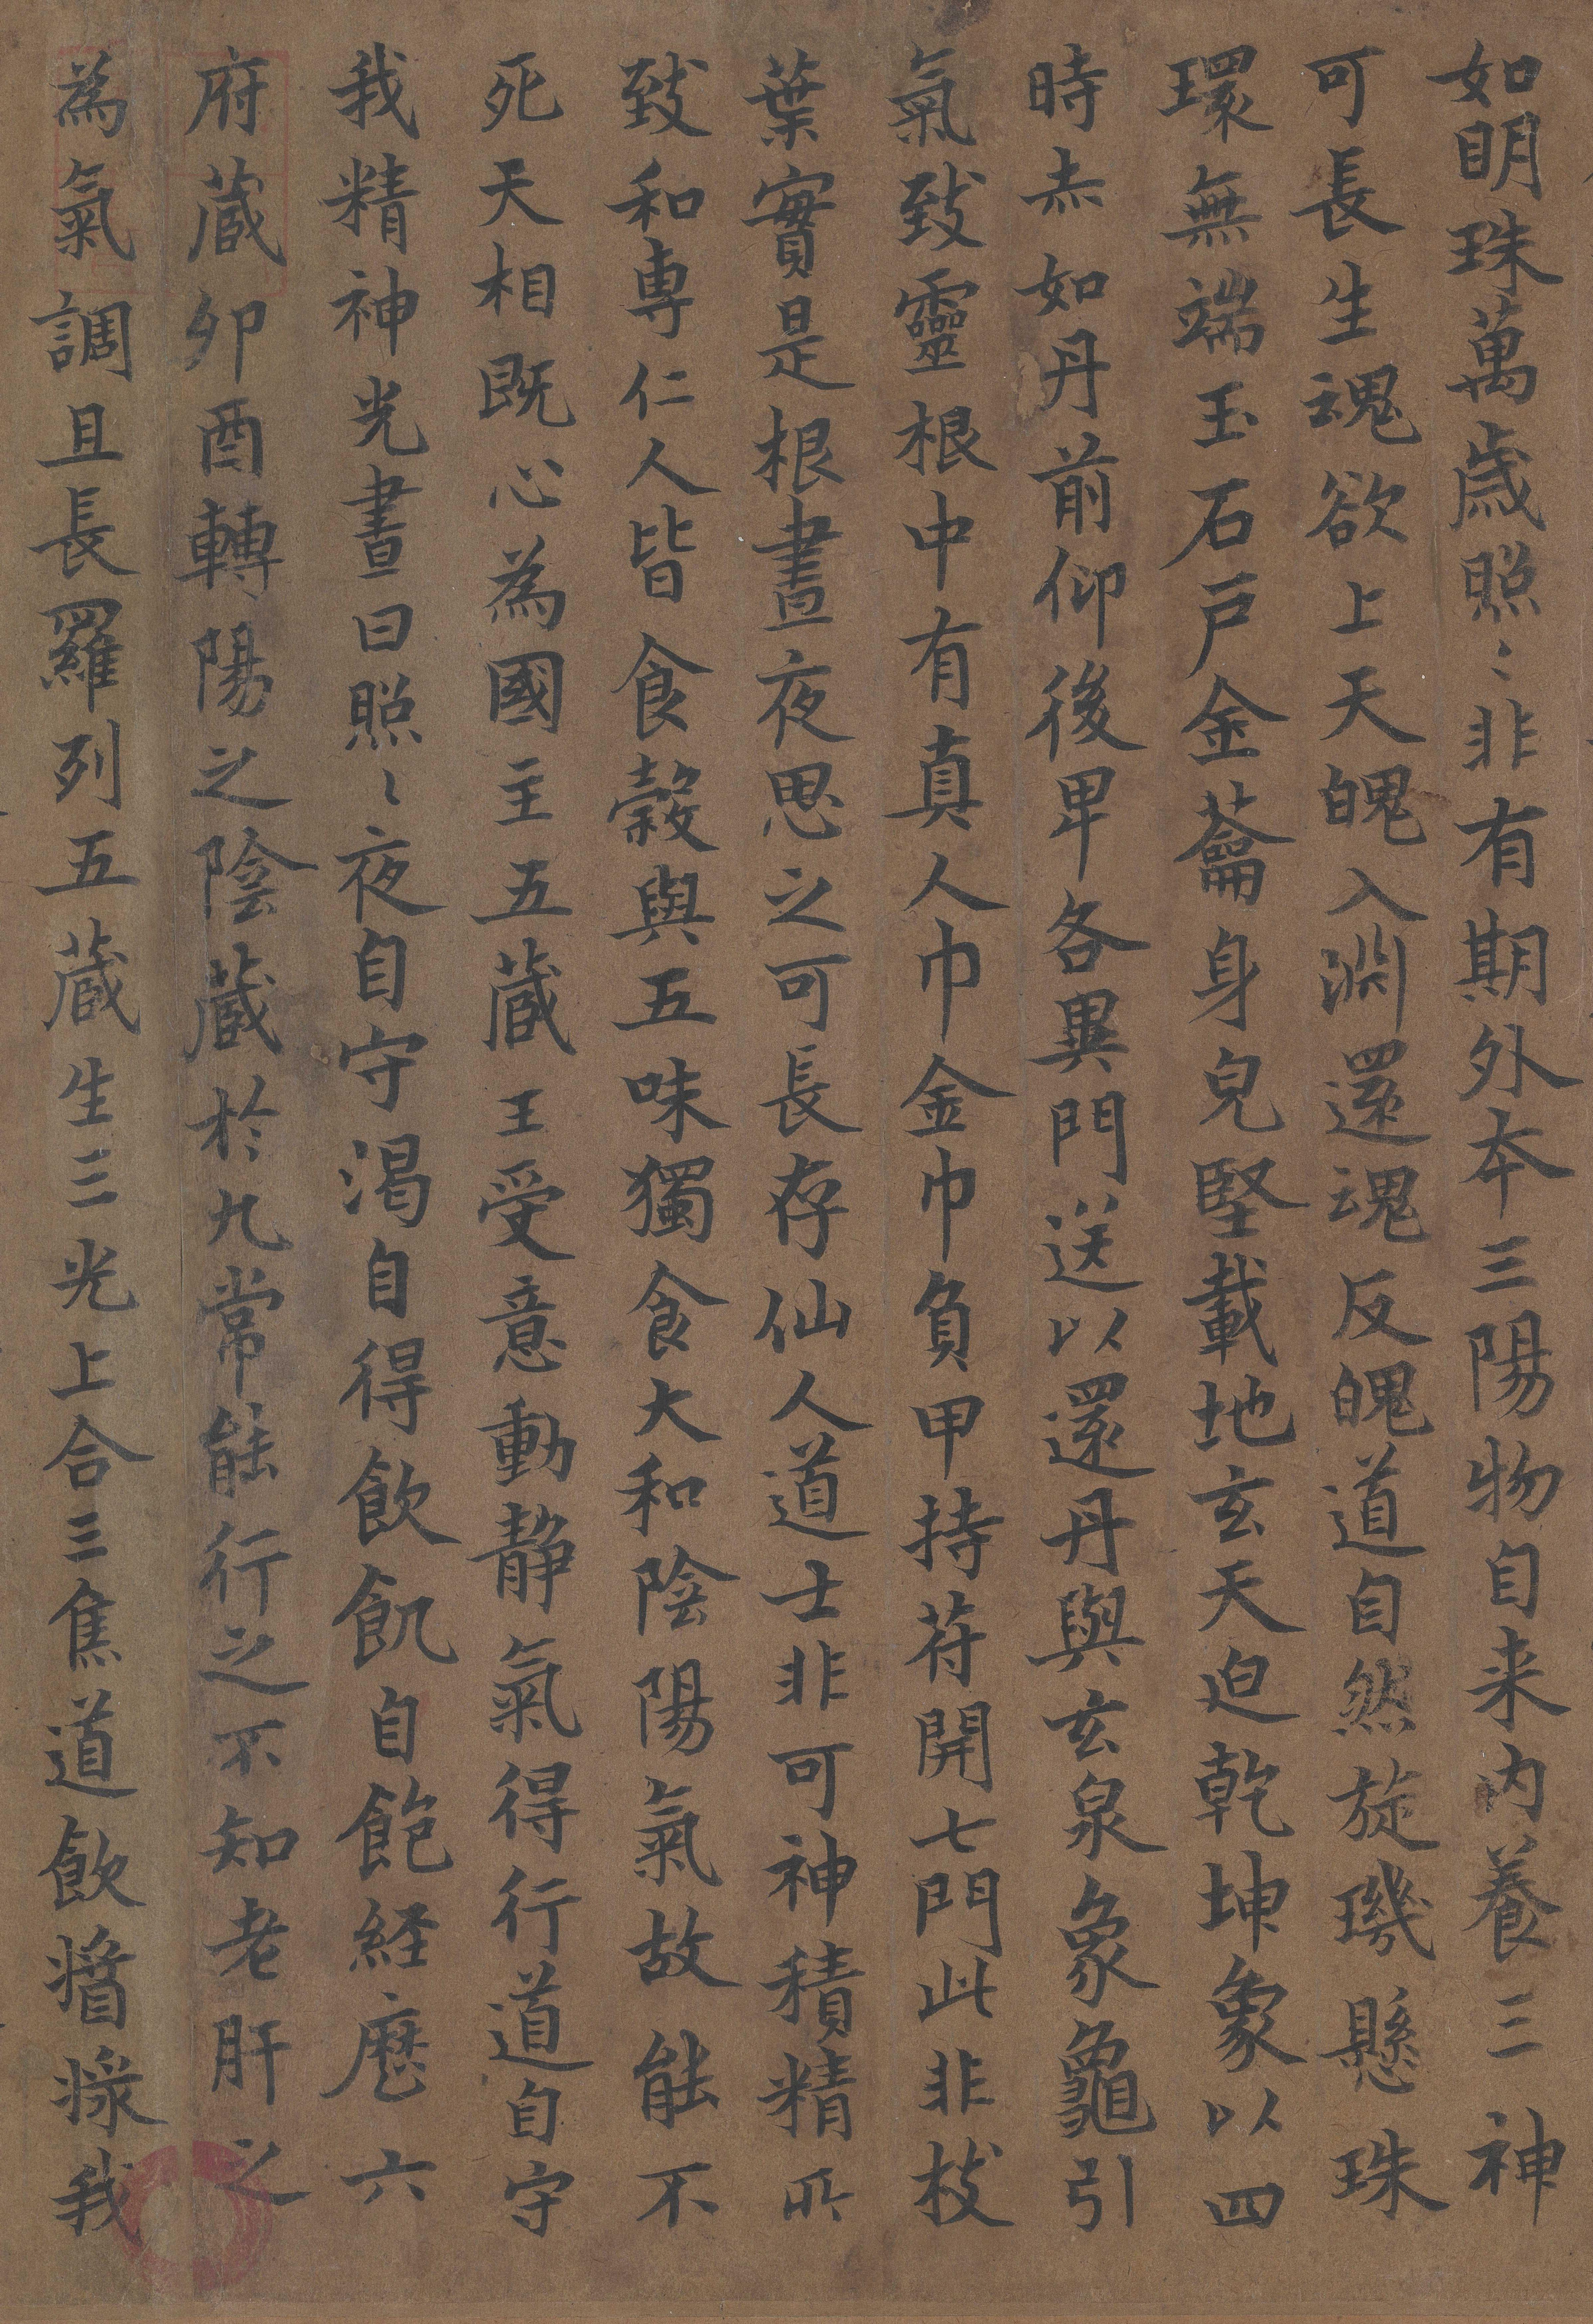 如明珠萬歲照〻非有期外本三陽物自来内養三神
可長生魂欲上天魄入淵還魂反魄道自然旋璣懸珠
環無端玉石戶金蘥身皃堅載地玄天迫乾坤象以四
時赤如丹前仰後卑各異門送以還丹與玄泉象龜引
氣致靈根中有真人巾金巾負甲持苻開七門此非枝
葉實是根晝夜思之可長存仙人道士非可神積精所
致和專仁人皆食穀與五味獨食大和陰陽氣故能不
死天相既心為國主五蔵王受意動靜氣得行道自守
我精神光晝日照〻夜自守渴自得飲飢自飽経歷六
府蔵卯酉轉陽之陰蔵於九常能行之不知老肝之
為氣調且長羅列五蔵生三光上合三焦道飲𤖆㢡我